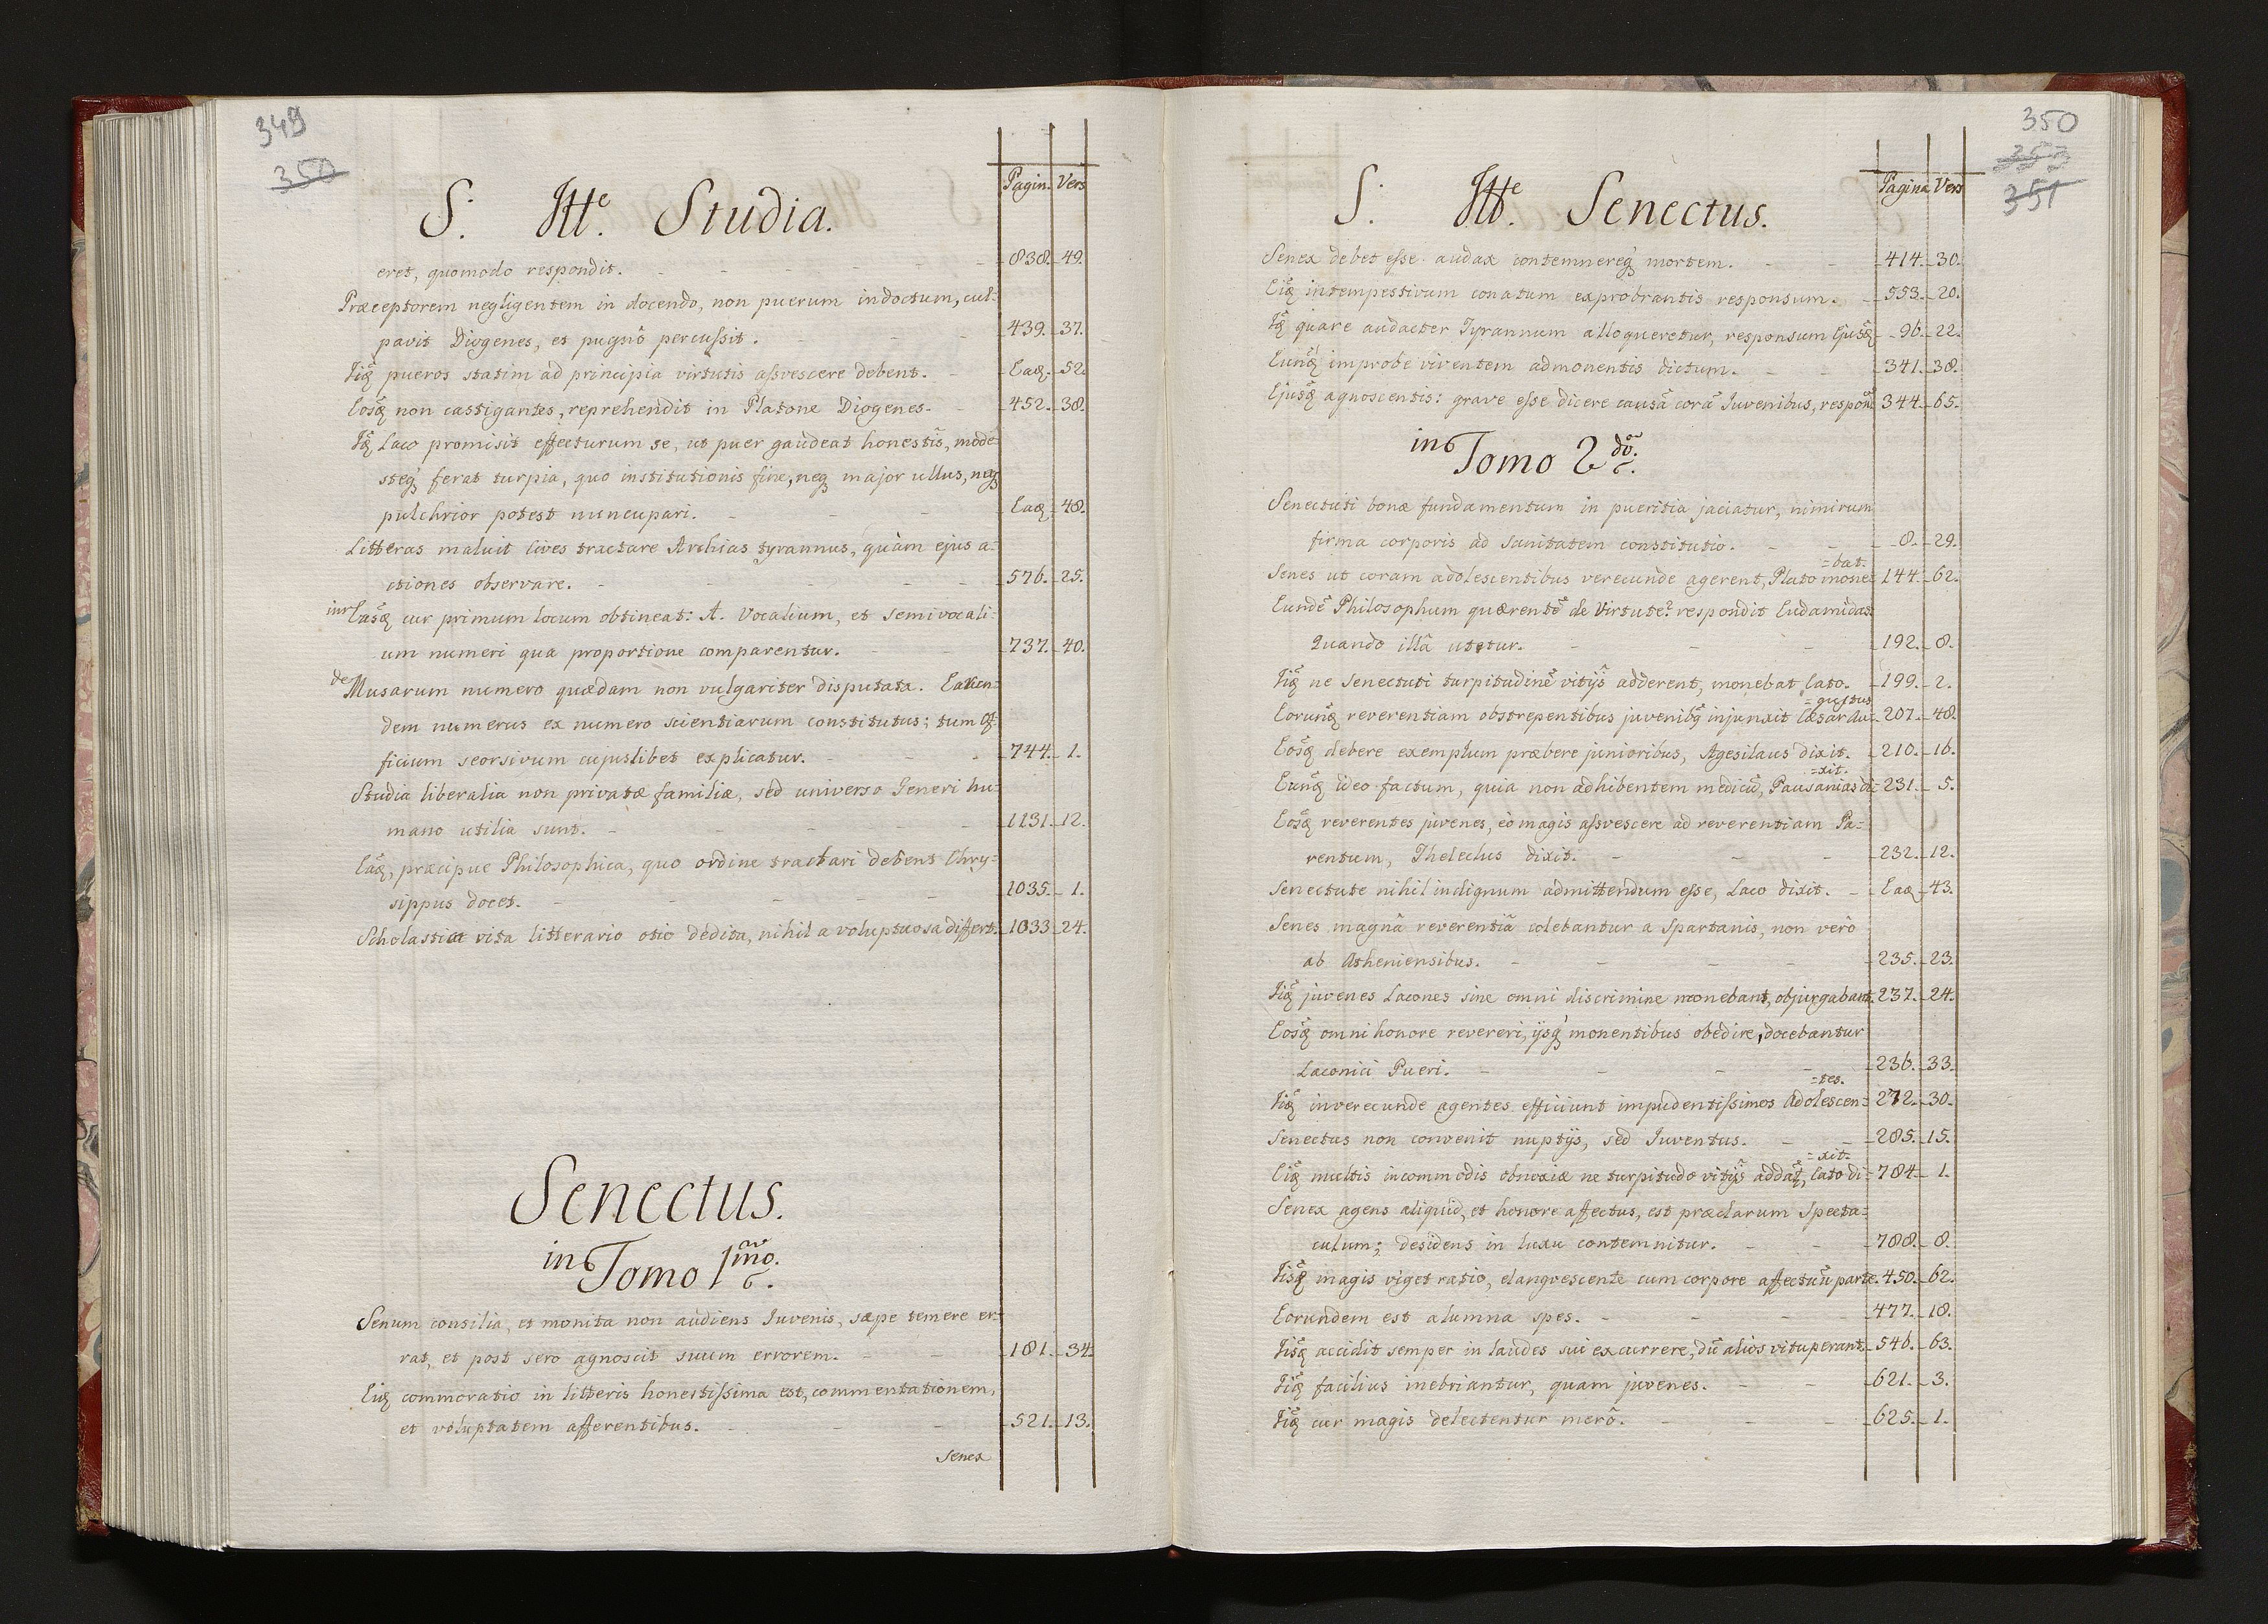 349
350
S. Itte. Studia.
Pagin. Vers
eret, quomodo respondit. 838. 49.
Præceptorem negligentem in docendo, non puerum indoctum, cul-
pavit Diogenes, et pugnô percussit. 439. 37.
Iiq̃ pueros statim ad principia virtutis assvescere debent. Eaq̃. 52
Eosq̃ non castigantes, reprehendit in Platone Diogenes. 452. 38.
Iq̃ Laco promisit effecturum se, ut puer gaudeat honestis, mode
steq́ ferat turpia, quo institutionis fine, neq́ major ullus, neq́
pulchrior potest nuncupari. Eaq̃. 48.
Litteras maluit cives tractare Archias tyrannus, quàm ejus a-
ctiones observare. 576. 25.
inr Easq̃ cur primum locum obtineat: A. Vocalium, et semivocali-
um numeri qua proportione comparentur. 737. 40.
de Musarum numero quædam non vulgariter disputata. Earun-
dem numerus ex numero scientiarum constitutus; tum of-
ficium seorsivum cujuslibet explicatur. 744. 1.
Studia liberalia non privatæ familiæ, sed universo Generi hu-
mano utilia sunt. 1131. 12.
Eaq̃, præcipue Philosophica, quo ordine tractari debent Chry-
sippus docet. 1035. 1.
Scholastica vita litterario otio dedita, nihil a voluptuosa differt. 1033. 24.
Senectus.
in Tomo 1mo.
Senum consilia, et monita non audiens Juvenis, sæpe temere er-
rat, et post sero agnoscit suum errorem. 181. 34.
Eiq̃ commoratio in litteris honestissima est, commentationem,
et voluptatem afferentibus. 521. 13.
Senex
350
353
351
S. Itte. Senectus.
Pagina Vers
Senex debet esse audax contemnereq́ mortem. 414. 30.
Eiq̃ intempestivum conatum exprobrantis responsum. 553. 20.
Iq̃ quare audacter Tyrannum alloqueretur, responsum Ejusq̃ 96. 22.
Eunq̃ improbe viventem admonentis dictum. 341. 38.
Ejusq̃ agnoscentis: grave esse dicere causã corã Juvenibus, respons̃ 344. 65.
in Tomo 2do.
Senectuti bonæ fundamentum in pueritia jaciatur, nimirum
firma corporis ad sanitatem constitutio. 8. 29.
=bat.
Senes ut coram adolescentibus verecunde agerent, Plato mone= 144. 62.
Eundẽ Philosophum quærentẽ de Virtute? respondit Eudamidas
Quando illâ utetur. 192. 8.
Iiq̃ ne senectuti turpitudinẽ vitijs̃ adderent, monebat Cato. 199. 2.
=gustus
Eorunq̃ reverentiam obstrepentibus juvenibq́ injunxit Cæsar Au= 207. 48.
Eosq̃ debere exemplum præbere junioribus, Agesilaus dixit. 210. 16.
=xit.
Eunq̃ ideo factum, quia non adhibentem medicũ, Pausanias di= 231. 5.
Eosq̃ reverentes juvenes, eò magis assvescere ad reverentiam Pa-
rentum, Thelechus dixit. 232. 12.
Senectute nihil indignum admittendum esse, Laco dixit. Eaq̃ 43.
Senes magnâ reverentiâ colebantur a Spartanis, non verò
ab Atheniensibus. 235. 23.
Iiq̃ juvenes Lacones sine omni discrimine monebant, objurgabant. 237. 24.
Eosq̃ omni honore revereri, ijsq́ monentibus obedire, docebantur
Laconici Pueri. 236. 33.
=tes.
Iiq̃ inverecunde agentes efficiunt impudentissimos Adolescen= 272. 30.
Senectus non convenit nuptijs, sed Juventus. 285. 15.
=xit.
Eiq̃ multis incommodis obnoxiæ ne turpitudo vitijs̃ addat̃, Cato di= 784. 1.
Senex agens aliquid, et honore affectus, est præclarum specta-
culum; desidens in luxu contemnitur. 788. 8.
Iisq̃ magis viget ratio, elangvescente cum corpore affectuũ parte. 450. 62.
Eorundem est alumna spes. 477. 18.
Iisq̃ accidit semper in laudes sui excurrere, dũ alios vituperant. 546. 63.
Iiq̃ facilius inebriantur, quam juvenes. 621. 3.
Iiq̃ cur magis delectentur merô. 625. 1.